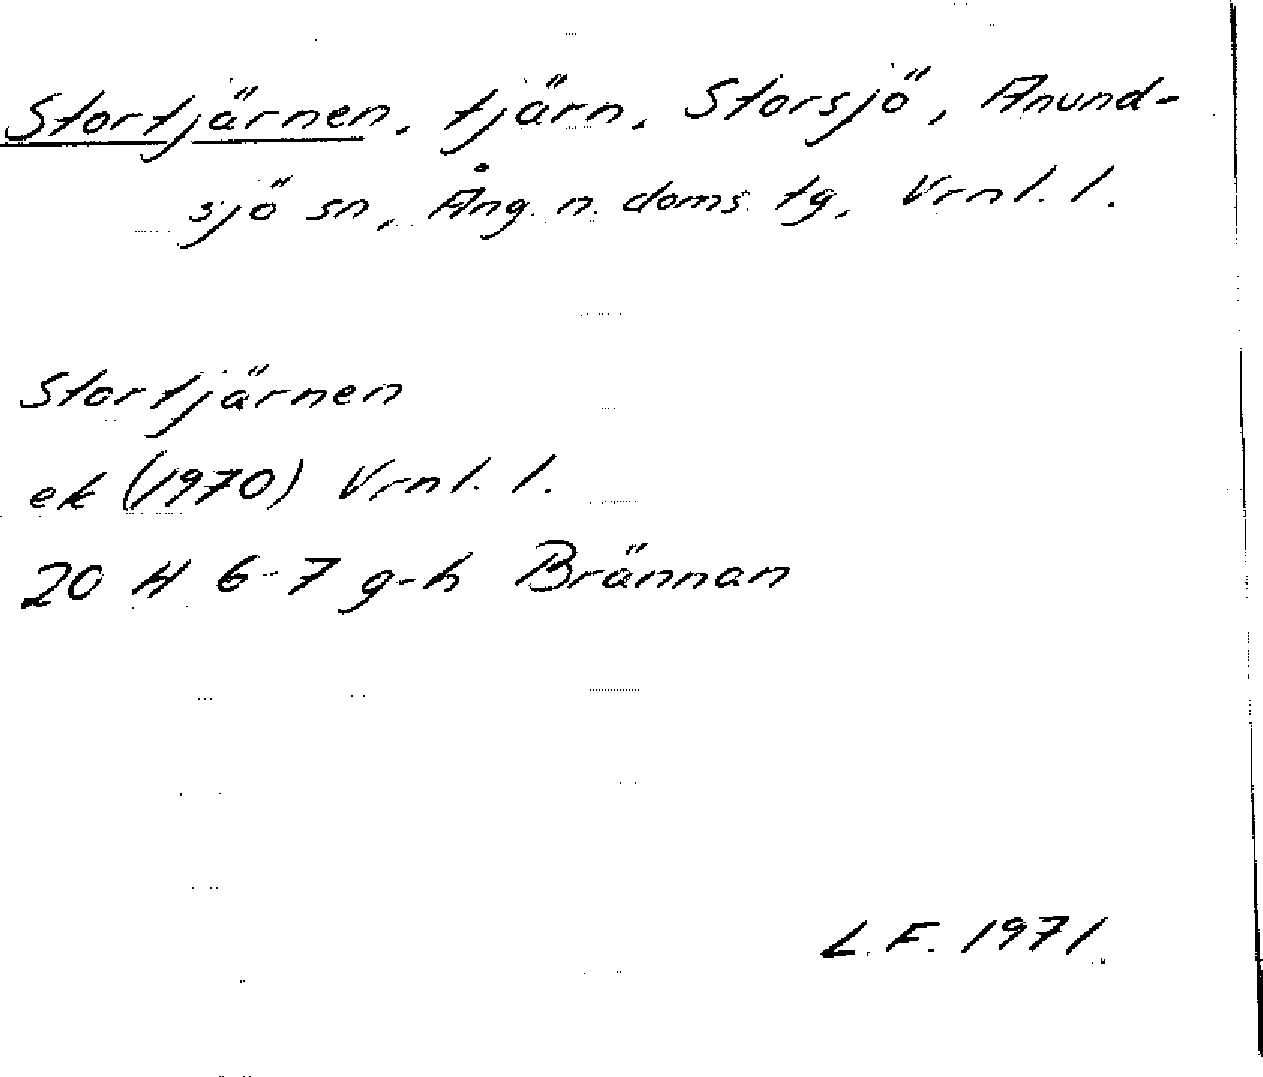 Stortjärnen, tjärn, Storsjö, Anund-
sjö sn, Ång. n. doms. tg, Vrnl. l.
Stortjärnen
ek (1970) Vrnl. l.
20 H 6-7 g-h Brännan
L. F. 1971.